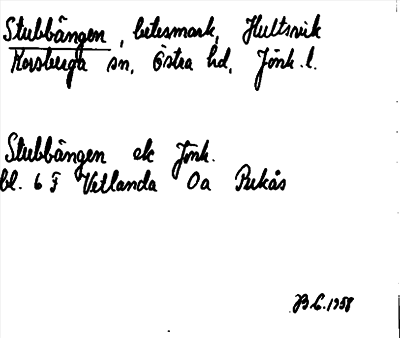 Stubbängen, betesmark, Hultsvik
Korsberga sn, Östra hd, Jönk. l.
Stubbängen ek Jönk.
bl. 6 F Vetlanda 0a Rukås
B.L. 1958